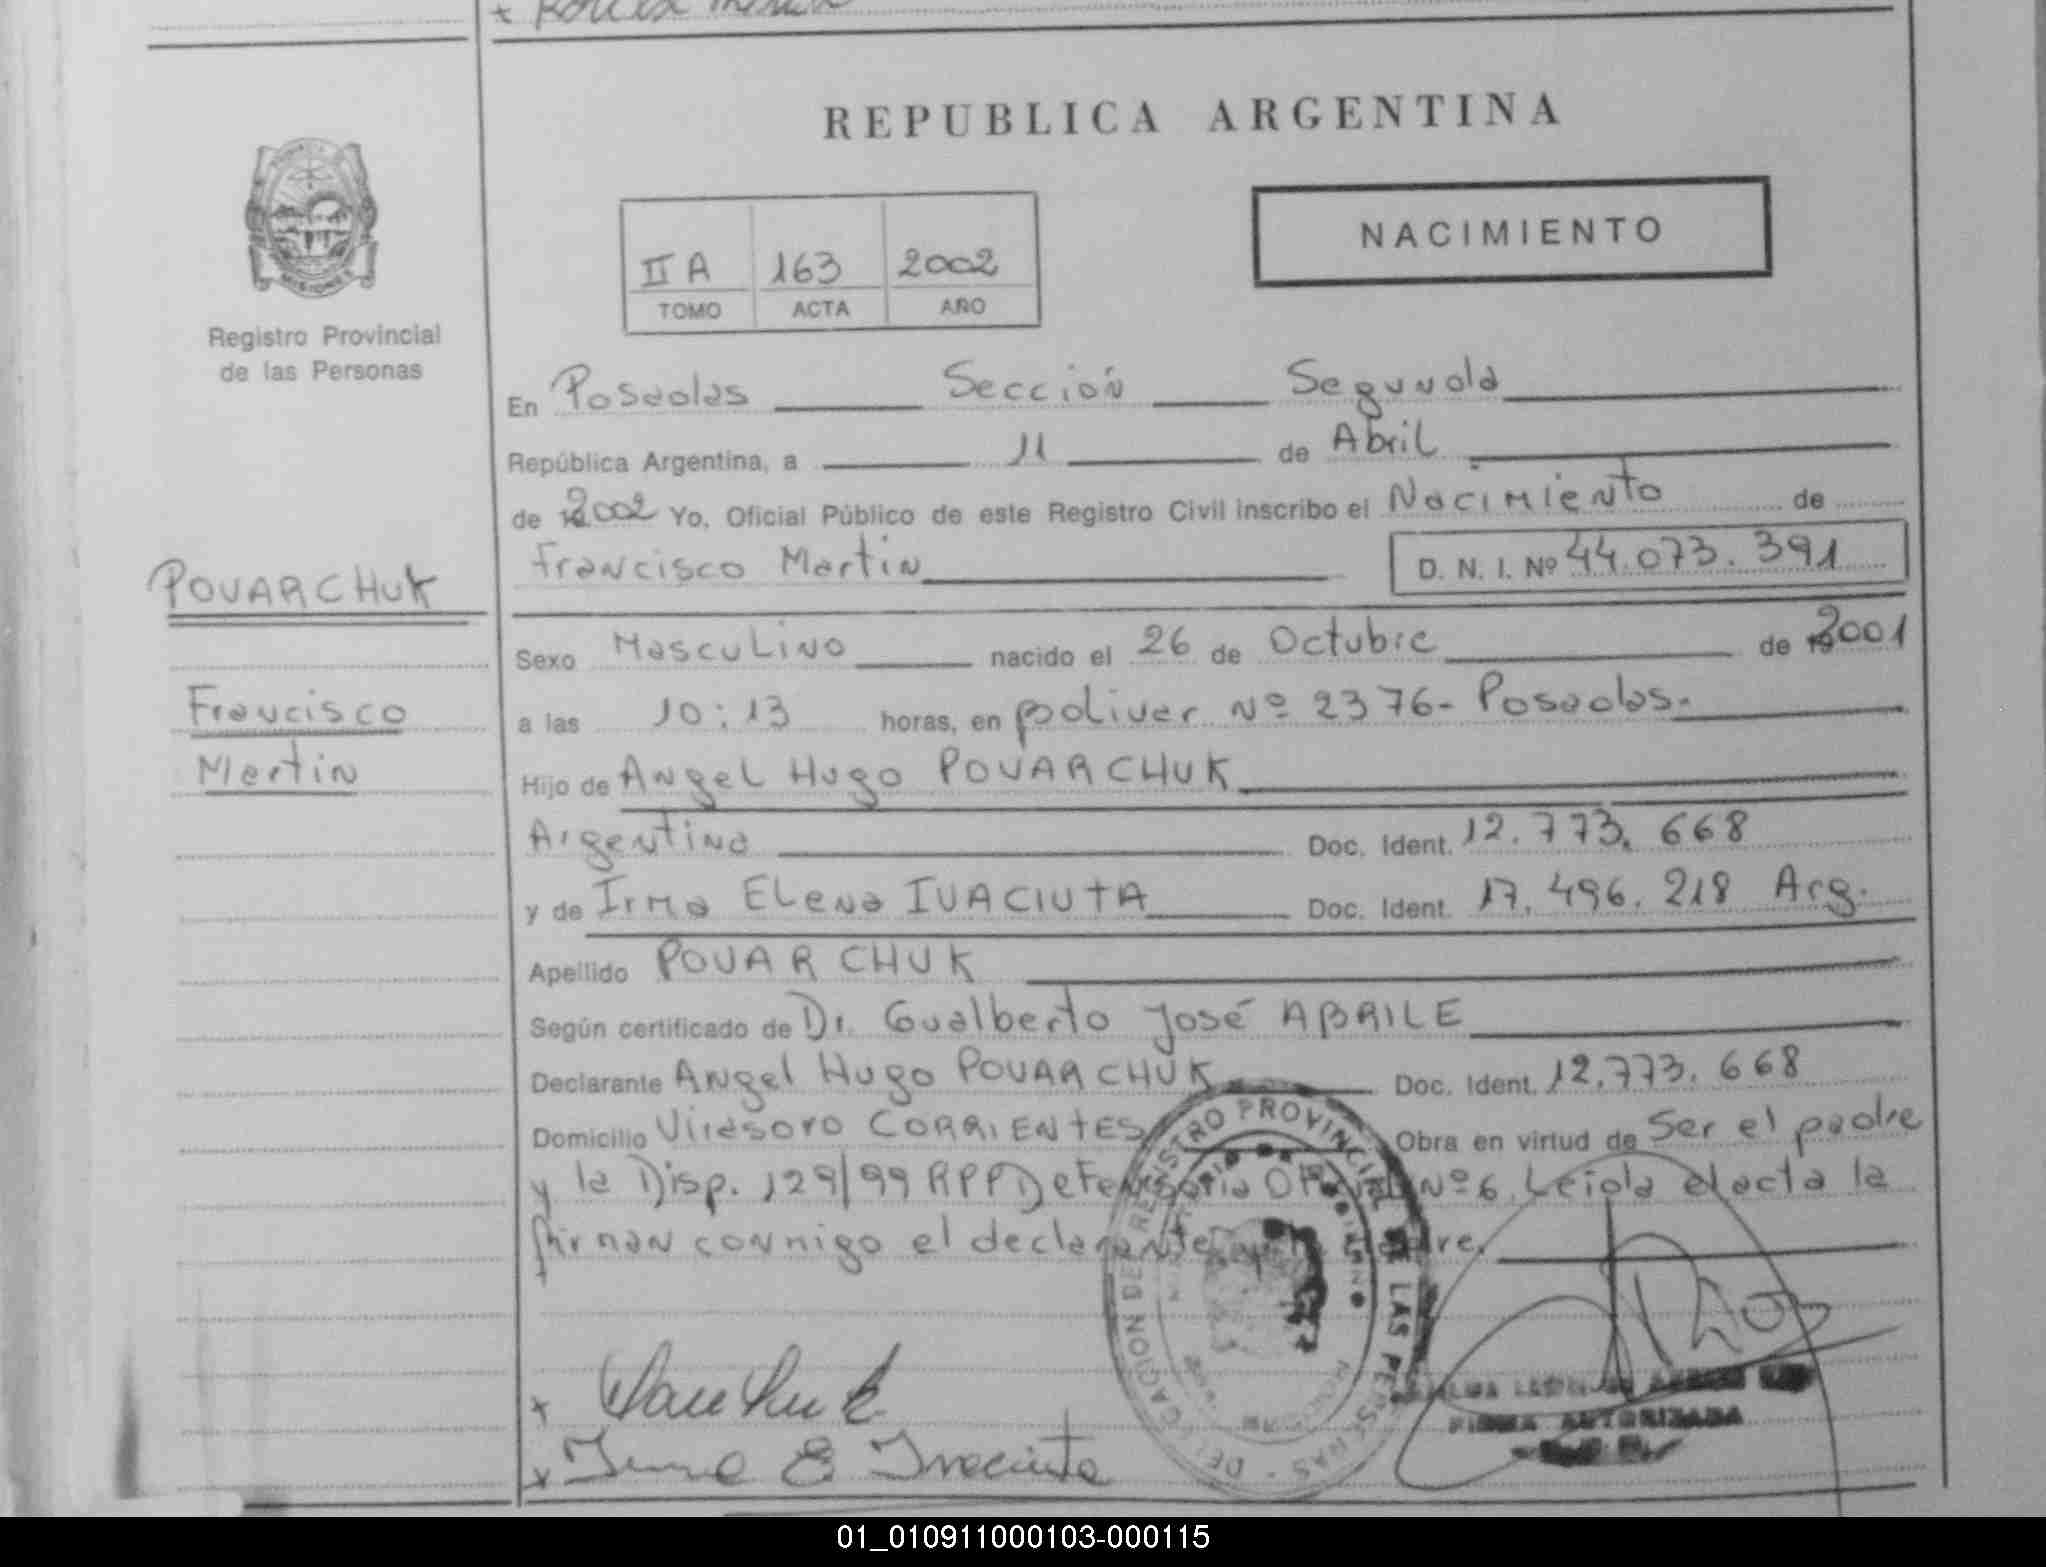 REPUBLICA ARGENTINA
NACIMIENTO
II A 163 2002
TOMO ACTA AÑO
MISIONES
Registro Provincial
de las Personas
POVARCHUK
Francisco
Martin
En Posadas Sección Segunda
República Argentina, a 11 de Abril
de 2002 Yo, Oficial Público de este Registro Civil inscribo el Nacimiento de
Francisco Martin D. N. I. Nº 44.073.391
Sexo Masculino nacido el 26 de Octubre de 2001
a las 10:13 horas, en Bolivar Nº 2376- Posadas.
Hijo de Angel Hugo POVARCHUK
Argentino Doc. Ident. 12.773.668
y de Irma Elena IVACIUTA Doc. Ident. 17.496.218 Arg.
Apellido POVARCHUK
Según certificado de Dr. Gualberto José ABRILE
Declarante Angel Hugo POVARCHUK Doc. Ident. 12.773.668
Domicilio Virasoro CORRIENTES Obra en virtud de Ser el padre
y la Disp. 129/99 RPP Defensoria Oficial Nº 6. Leida el acta la
firman conmigo el declarante y la madre.
DELEGACION DE REGISTRO PROVINCIAL DE LAS PERSONAS
Irma E Ivaciuta
FIRMA AUTORIZADA
01_010911000103-000115